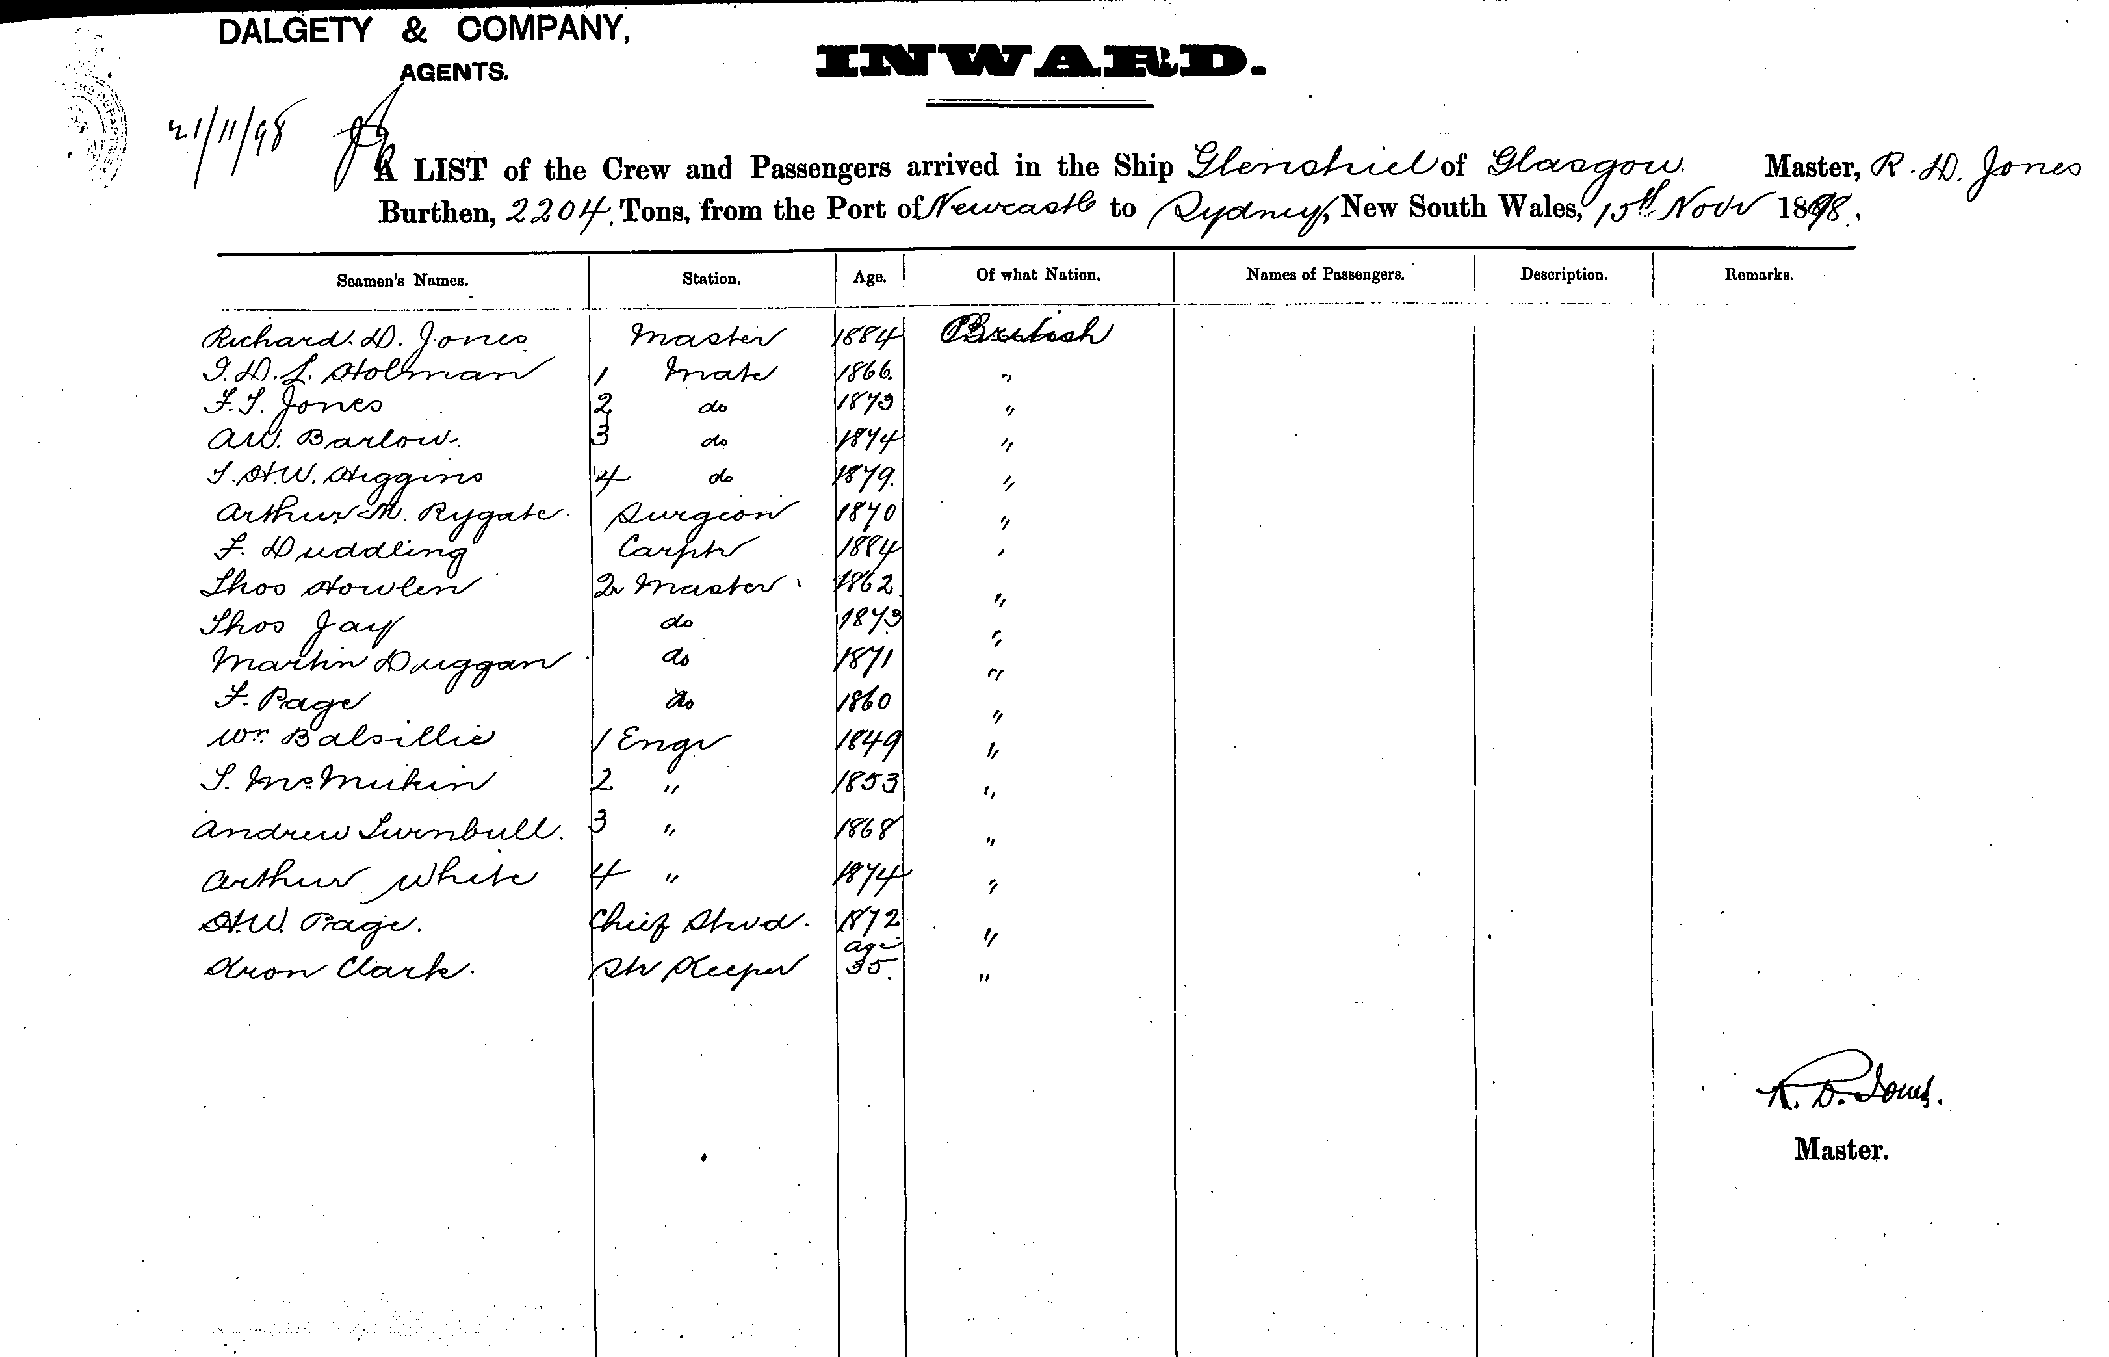 DALGETY & COMPANY,
AGENTS.
INWARD.
21/11/98
A LIST of the Crew and Passengers arrived in the Ship Glenshiel of Glasgow. Master, R. D. Jones
Burthen, 2204. Tons, from the Port of Newcastle to Sydney, New South Wales, 15th Novr 1898.
Seamen's Names. Station. Age. Of what Nation. Names of Passengers. Description. Remarks.
Richard. D. Jones Master 1884 British
T. D. L. Holman 1 Mate 1866. "
F. T. Jones 2 do 1873 "
A.W. Barlow. 3 do 1874 "
T. H.W. Higgins 4 do 1879. "
Arthur M. Rygate. Surgeon 1870 "
F. Duddling Carptr 1884 "
Thos Howlen Qr Master 1862 "
Thos Jay do 1873 "
Martin Duggan do 1871 "
F. Page do 1860 "
Wm Balsillie 1 Engr 1849 "
T. McMeikin 2 " 1853 "
Andrew Turnbull. 3 " 1868 "
Arthur White 4 " 1874 "
H.W. Page. Chief Stwd. 1872 "
Clark. Str Keeper age 35. "
R. D. Jones.
Master.